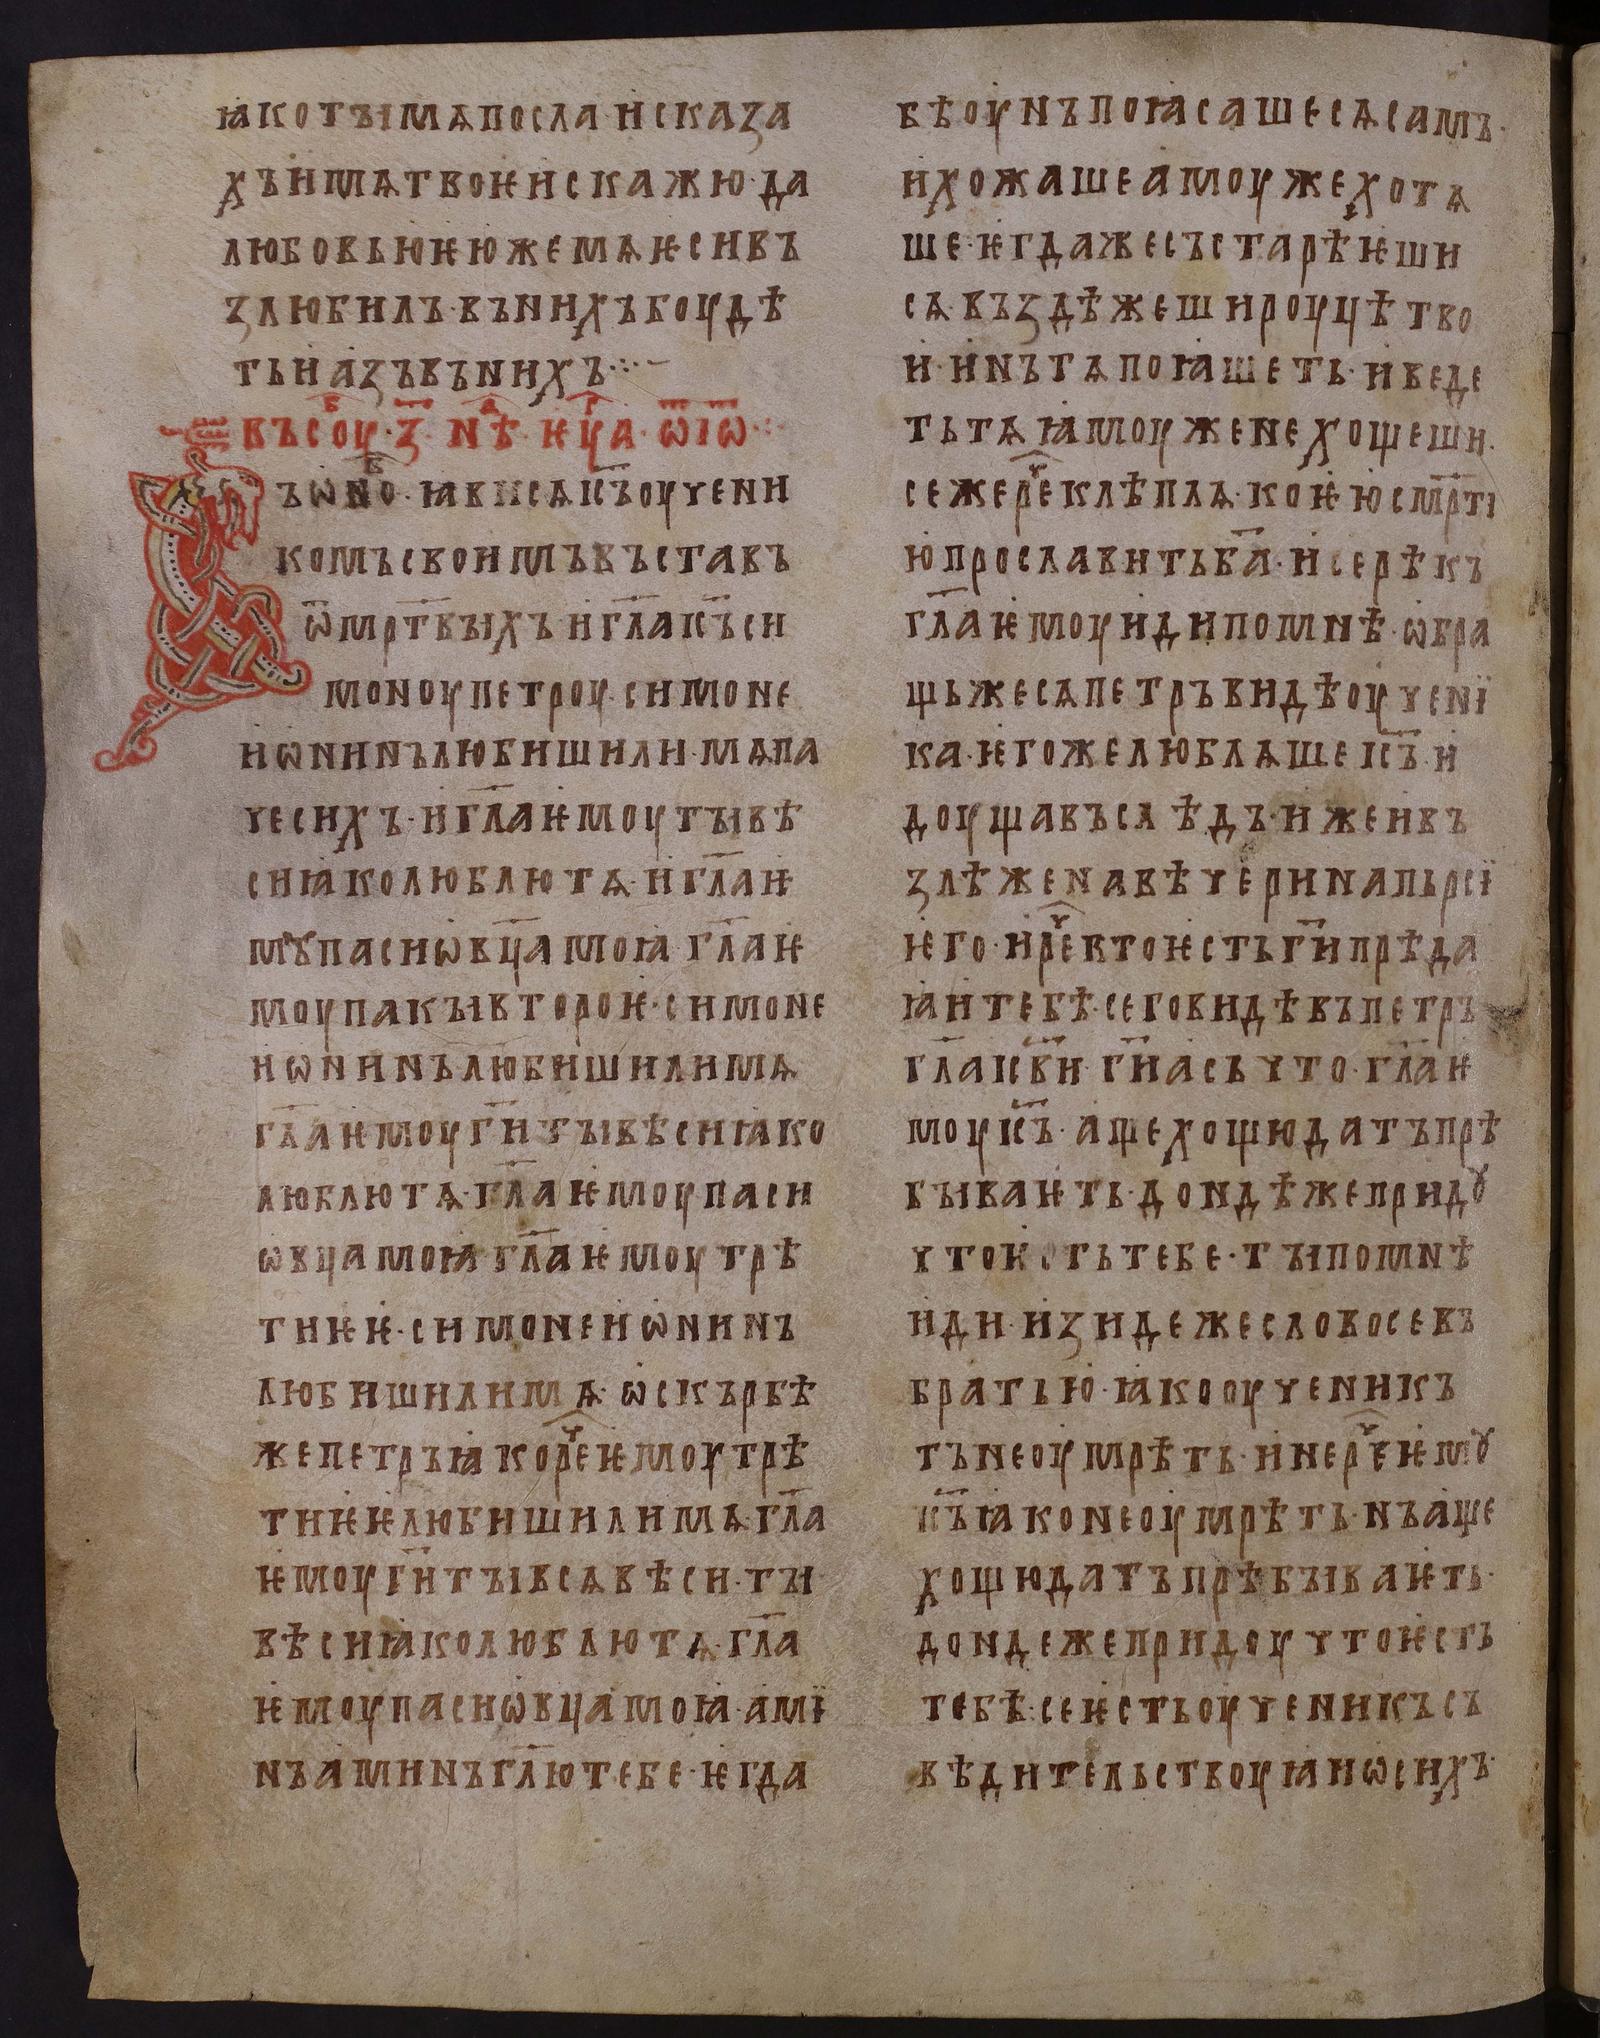 ꙗкотꙑмѧпосла·искаꙁа
хъимꙗтвоѥискажю·да
любовьюѥюжемѧѥсивъ
ꙁлюбилъ·въниⷯхъбоудѣ
тьиаꙁъвънихъ·:·~
въсоуⷠ·з҃·нⷣѣ·ѥуⷢ҇а·ѿіѡ҃·:
ъѡⷡ҇но·ꙗвисѧіс҃ъоучени
комъсвоимъвъставъ
ѿмр҃твꙑхъ·игл҃аіс҃ъси
моноупетроу·симоне
иѡнинълюбишили·мѧпа
чесихъ·игл҃аѥмоутꙑвѣ
сиꙗколюблютѧ·игл҃аѥ
мꙋпасиѡвц҃амоꙗ·гл҃аѥ
моупакꙑвтороѥ·симоне
иѡнинълюбишилимѧ
гл҃аѥмоугн҃тꙑвѣсиꙗко
люблютѧ·гл҃аѥмоупаси
ѡвцамоꙗ·гл҃аѥмоутрѣ
тиѥѥ·симонеиѡнинъ
любишилимѧ·ѡскърбѣ
жепетръꙗкореⷱ҇ѥмоутрѣ
тиѥѥлюбишилимѧ·гл҃а
ѥмоугн҃тꙑвсѧвѣси·тꙑ
вѣсиꙗколюблютѧ·гл҃а
ѥмоупасиѡвцамоꙗ·амї
нъаминъгл҃ютебе·ѥгда
бѣоунъпоꙗсашесѧсамъ·
ихожашеаможехотѧ
ше·ѥгдажесъстарѣѥши
сѧ·въꙁдѣжешироуцѣтво
и·инътѧпоꙗшеть·иведе
тьтѧꙗмоуженехощеши·
сежереⷱ҇клѣплѧ·коѥюсм҃рті
юпрославитьб҃а·исерѣкъ
гл҃аѥмоуидипомнѣ·ѡбра
щьжесѧпетръвидѣоученї
ка·ѥгожелюблѧшеіс҃ъ·и
доущавъслѣдъ·ижеивъ
ꙁлѣженавѣчеринапьрсї
ѥго·иреⷱ҇ктоѥстьг҃ипрѣда
ꙗитебѣ·сеговидѣвъпетръ
гл҃аіс҃ви·г҃иасьчто·гл҃аѥ
моуіс҃ъ·ащехощюдатъпрѣ
бꙑваѥть·дондѣжепридꙋ
чтоѥстьтебе·тꙑпомнѣ
иди·иꙁидежесловосевъ
братью·ꙗкооученикъ
тънеоумрѣть·инереⷱ҇ѥмꙋ
іс҃ъꙗконеоумрѣть·нъаще
хощюдатъпрѣбꙑваѥть·
дондежепридоучтоѥсть
тебѣ·сеѥстьоученикъсъ
вѣдительствоуꙗиѡсихъ·